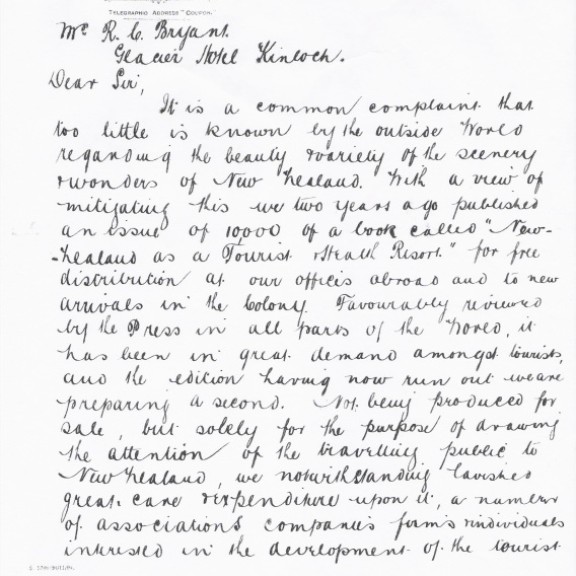 TELEGRAPHIC ADDRESS "COUPON."
Mr R. C. Bryant.
Glacier Hotel Kinloch.
Dear Sir,
It is a common complaint that
too little is known by the outside World
regarding the beauty & variety of the scenery
& wonders of New Zealand. With a view of
mitigating this we two years ago published
an issue of 10000 of a book called "New-
-Zealand as a Tourist & Health Resort." for free
distribution at our offices abroad and to new
arrivals in the Colony. Favourably reviewed
by the Press in all parts of the World, it
has been in great demand amongst tourists,
and the edition having now run out we are
preparing a second. Not being produced for
sale, but solely for the purpose of drawing
the attention of the travelling public to
New Zealand, we notwithstanding lavished
great care & expenditure upon it, a number
of associations companies firms & individuals
interested in the development of the tourist